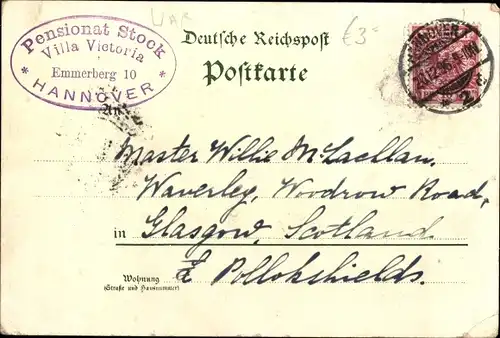 UAR
€3
Pensionat Stock
Villa Victoria
Emmerberg 10
* HANNOVER *
Deutsche Reichspost
Postkarte
HANNOVER
An
Master Willie McLachlan,
Waverley, Woodrow Road,
in Glasgow, Scotland.
E Pollokshields.
Wohnung
(Straße und Hausnummer)